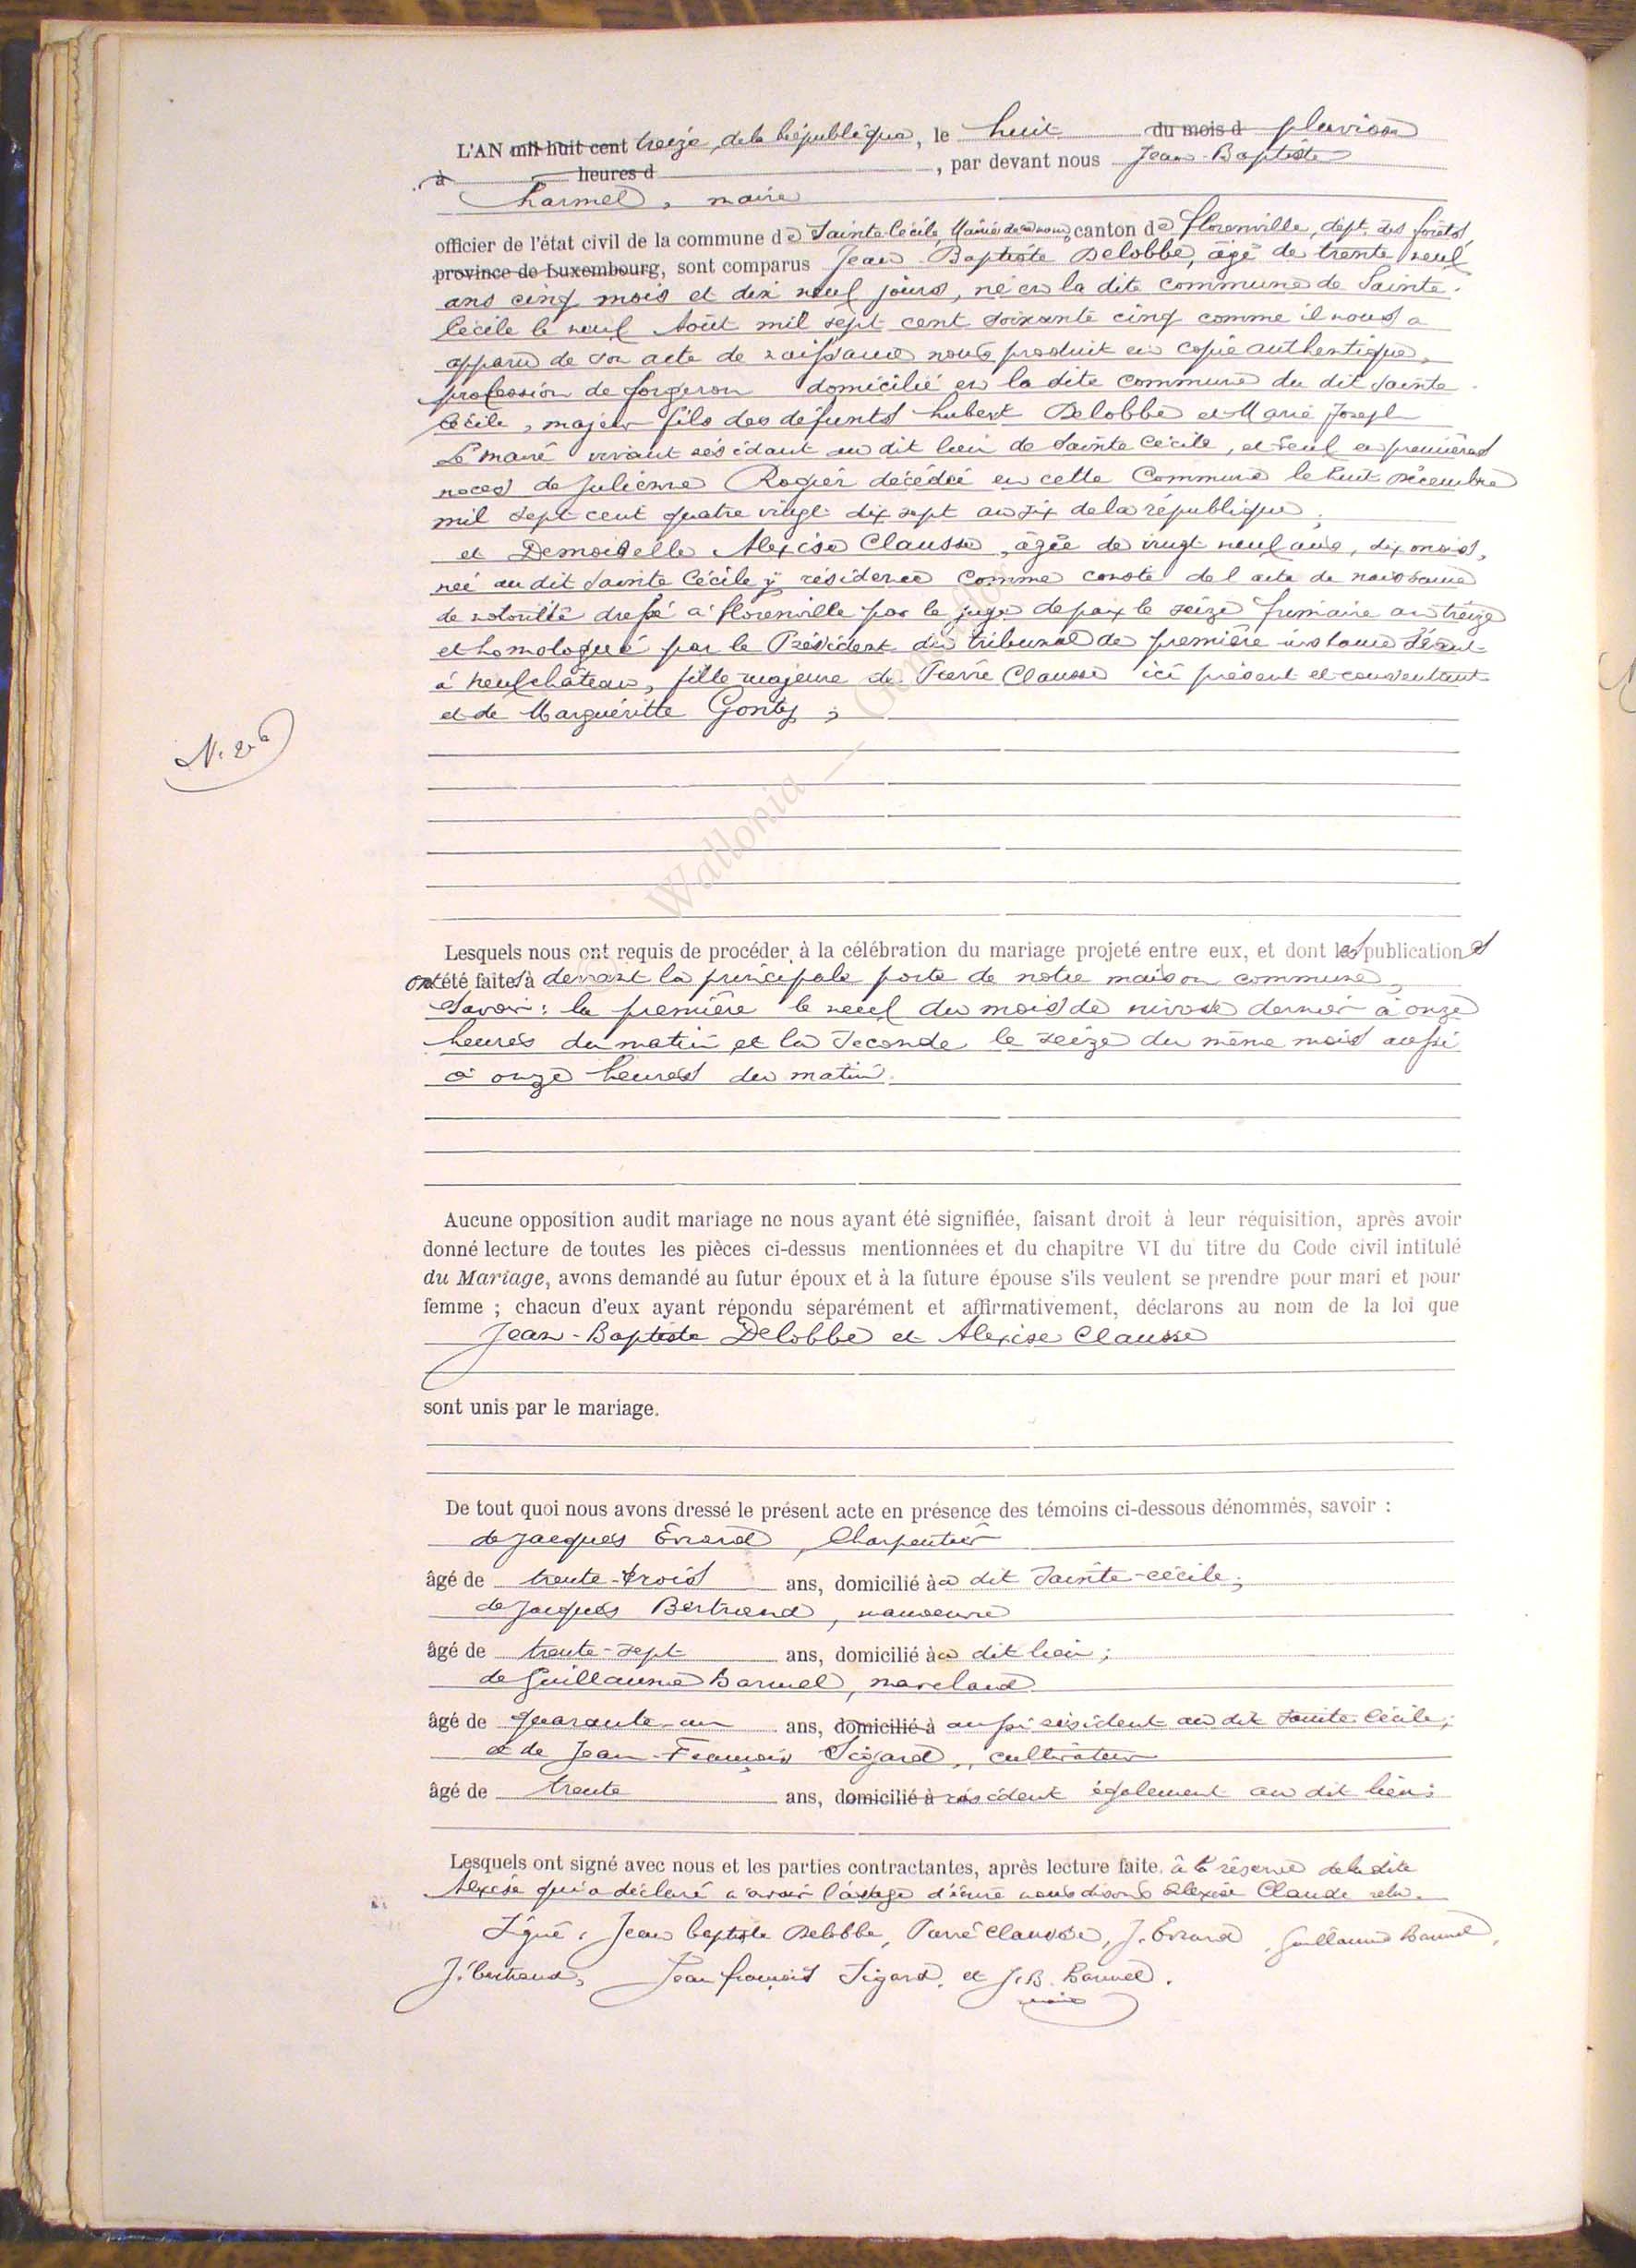 L'AN mil huit cent treize de la République, le huit du mois d pluviose
à heures d , par devant nous Jean-Baptiste
Charmel, maire
officier de l'état civil de la commune de Sainte-Cécile, Mairie de ce nom, canton de florenville, dépt. des forêts,
province de Luxembourg, sont comparus Jean-Baptiste Delobbe, âgé de trente neuf
ans cinq mois et dix neuf jours, né en la dite commune de Sainte-
Cécile le neuf Août mil sept cent soixante cinq comme il nous a
apparu de son acte de naissance nous produit en copie authentique,
profession de forgeron domicilié en la dite commune du dit Sainte
Cécile, majeur fils des défunts hubert Delobbe et Marie Joseph
Le maire vivant résidant au dit lieu de Sainte Cécile, et veuf en premières
noces de Julienne Rogier décédée en cette Commune le huit Décembre
mil sept cent quatre vingt dix sept an six de la république;
et Demoiselle Alexise Clausse, âgée de vingt neuf ans, dix mois,
née au dit Sainte Cécile y résidence comme conste de l'acte de naissance
de notoriété dressé à florenville par le juge de paix le seize frimaire an treize
et homologué par le Président du tribunal de première instance séant
à neufchâteau, fille majeure de Pierre Clausse ici présent et consentant
et de Marguéritte Gonty;
N. 2
Lesquels nous ont requis de procéder à la célébration du mariage projeté entre eux, et dont les publications
ont été faites à devant la principale porte de notre maison commune,
Savoir: la première le neuf du mois de nivose dernier à onze
heures du matin et la seconde le seize du même mois aussi
à onze heures du matin.
Aucune opposition audit mariage ne nous ayant été signifiée, faisant droit à leur réquisition, après avoir
donné lecture de toutes les pièces ci-dessus mentionnées et du chapitre VI du titre du Code civil intitulé
du Mariage, avons demandé au futur époux et à la future épouse s'ils veulent se prendre pour mari et pour
femme ; chacun d'eux ayant répondu séparément et affirmativement, déclarons au nom de la loi que
Jean-Baptiste Delobbe et Alexise Clausse
sont unis par le mariage.
De tout quoi nous avons dressé le présent acte en présence des témoins ci-dessous dénommés, savoir :
de Jacques Evrard, Charpentier
âgé de trente-trois ans, domicilié à dit Sainte-cécile;
de Jacques Bertrand, manoeuvre
âgé de trente-sept ans, domicilié à dit lieu;
de Guillaume Barmel, marchand
âgé de quarante-un ans, domicilié à aussi résident au dit Sainte Cécile;
et de Jean-François Sigard, cultivateur
âgé de trente ans, domicilié à résident également au dit lieu;
Lesquels ont signé avec nous et les parties contractantes, après lecture faite. à la réserve de la dite
Alexise qui a déclaré n'avoir l'usage d'écrire nous disons Alexise Clausse
Signé: Jean baptiste Delobbe, Pierre Clausse, J. Evrard, Guillaume Barmel,
J. bertrand, Jean françois Sigard, et J. B. Barmel.
maire
Wallonia